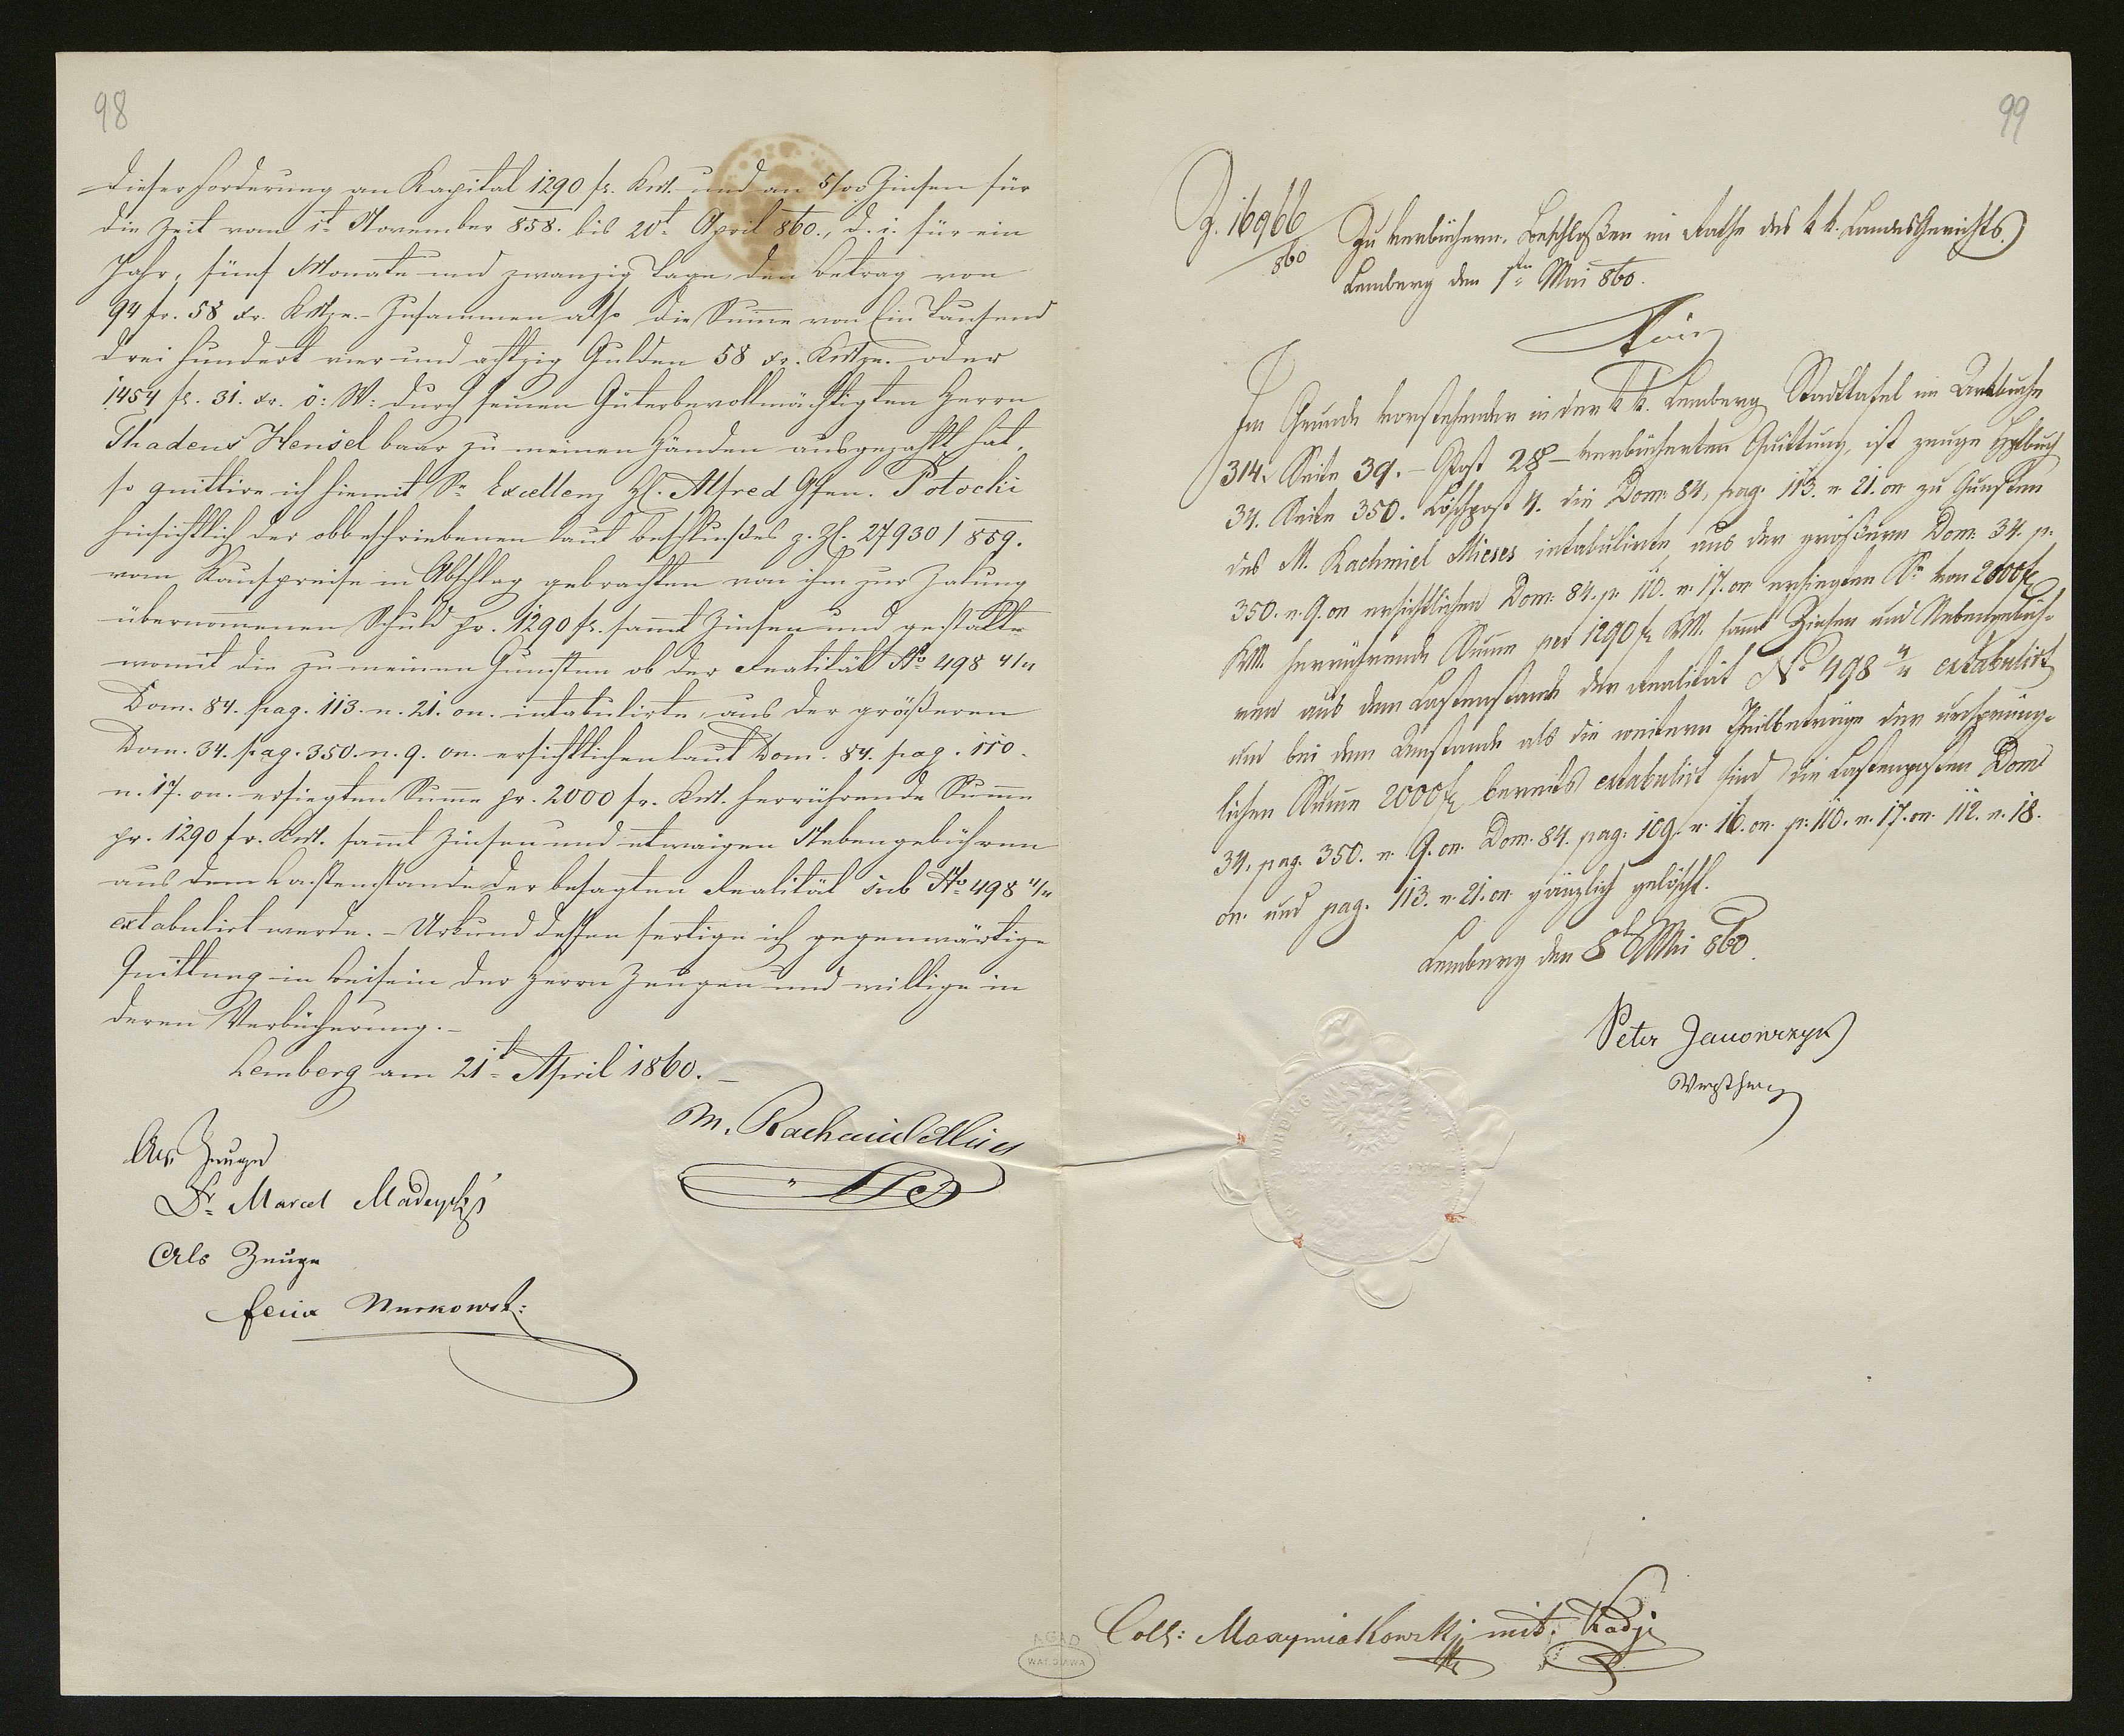 98
dieser Forderung an Kapital 1290 fr. KMt. und an 5/00 Zinsen für
die Zeit vom 1t November 858. bis 20t April 860., d. i. für ein
Jahr, fünf Monate und zwanzig Tage den Betrag von
94 fr. 58 xr. KMze. – Zusammen also die Summe von Ein Tausend
drei hundert vier und achtzig Gulden 58 xr. KMze. oder
1454 fr. 31. xr. ö: W: durch seinen Güterbevollmächtigten Herrn
Thadeus Hensel baar zu meinen Händen ausgezahlt hat,
so quittire ich hiemit Sr Excellenz H. Alfred Gfen. Potocki
hinsichtlich der obbeschriebenen laut Beschlußes z. Zl. 27930 / 859.
vom Kaufspreise in Abschlag gebrachten von ihm zur Zalung
übernommenen Schuld pr. 1290 fr. sammt Zinsen und gestatte
womit die zu meinen Gunsten ob der Realität No 498 4/4
Dom. 84. pag. 113. n. 21. on. intabulirte, aus der größeren
Dom. 34. pag. 350. n. 9. on. ersichtlichen laut Dom. 84. pag. 110.
n. 17. on. ersiegten Summe pr. 2000 fr. KMt. herrührende Summe
pr. 1290 fr. KMt. sammt Zinsen und etwaigen Nebengebühren
aus dem Lastenstande der besagten Realität sub No 498 4/4
extabulirt werde. – Urkund dessen fertige ich gegenwärtige
Quittung in Beisein der Herrn Zeugen und willige in
deren Verbücherung. –
Lemberg am 21t April 1860. –
M. Rachmiel Mieses
Als Zeuge
Dr Marcel Madeyski
Als Zeuge
99
Z. 16966
860
Zu verbüchern. Beschloßen im Rathe des k k. LandesGerichts.
Lemberg den 1ten Mai 860.
Im Grunde vorstehender in der k k. Lemberg Stadttafel im Urkbuche
314. Seite 39. – Post 28 – verbücherten Quittung, ist zeuge Hptbuch
34. Seite 350. Löschpost 4. die Dom: 84, pag. 113. n. 21. on zu Gunsten
des M. Rachmiel Mieses intabulirte, aus der größern Dom: 34. p.
350. n. 9. on ersichtlichen Dom: 84. p. 110. n. 17. on ersiegten Sr von 2000 fr
KM. herrührende Summe per 1290 fr KM. sammt Zinsen und Nebengebüh-
ren aus dem Lastenstande der Realität No 498 4/4 extabulirt
und bei dem Umstande als die weitern Theilbeträge der ursprüng-
lichen Summe 2000 fr bereits extabulirt sind die Lastenposten Dom
34, pag. 350. n. 9. on. Dom. 84. pag: 109. n. 16. on. p: 110. n. 17. on. 112. n. 18.
on. und pag. 113. n. 21. on gänzlich gelöscht.
Lemberg den 8t Mai 860.
Peter Janowczyk
Coll:
mit
AGAD
WARSZAWA